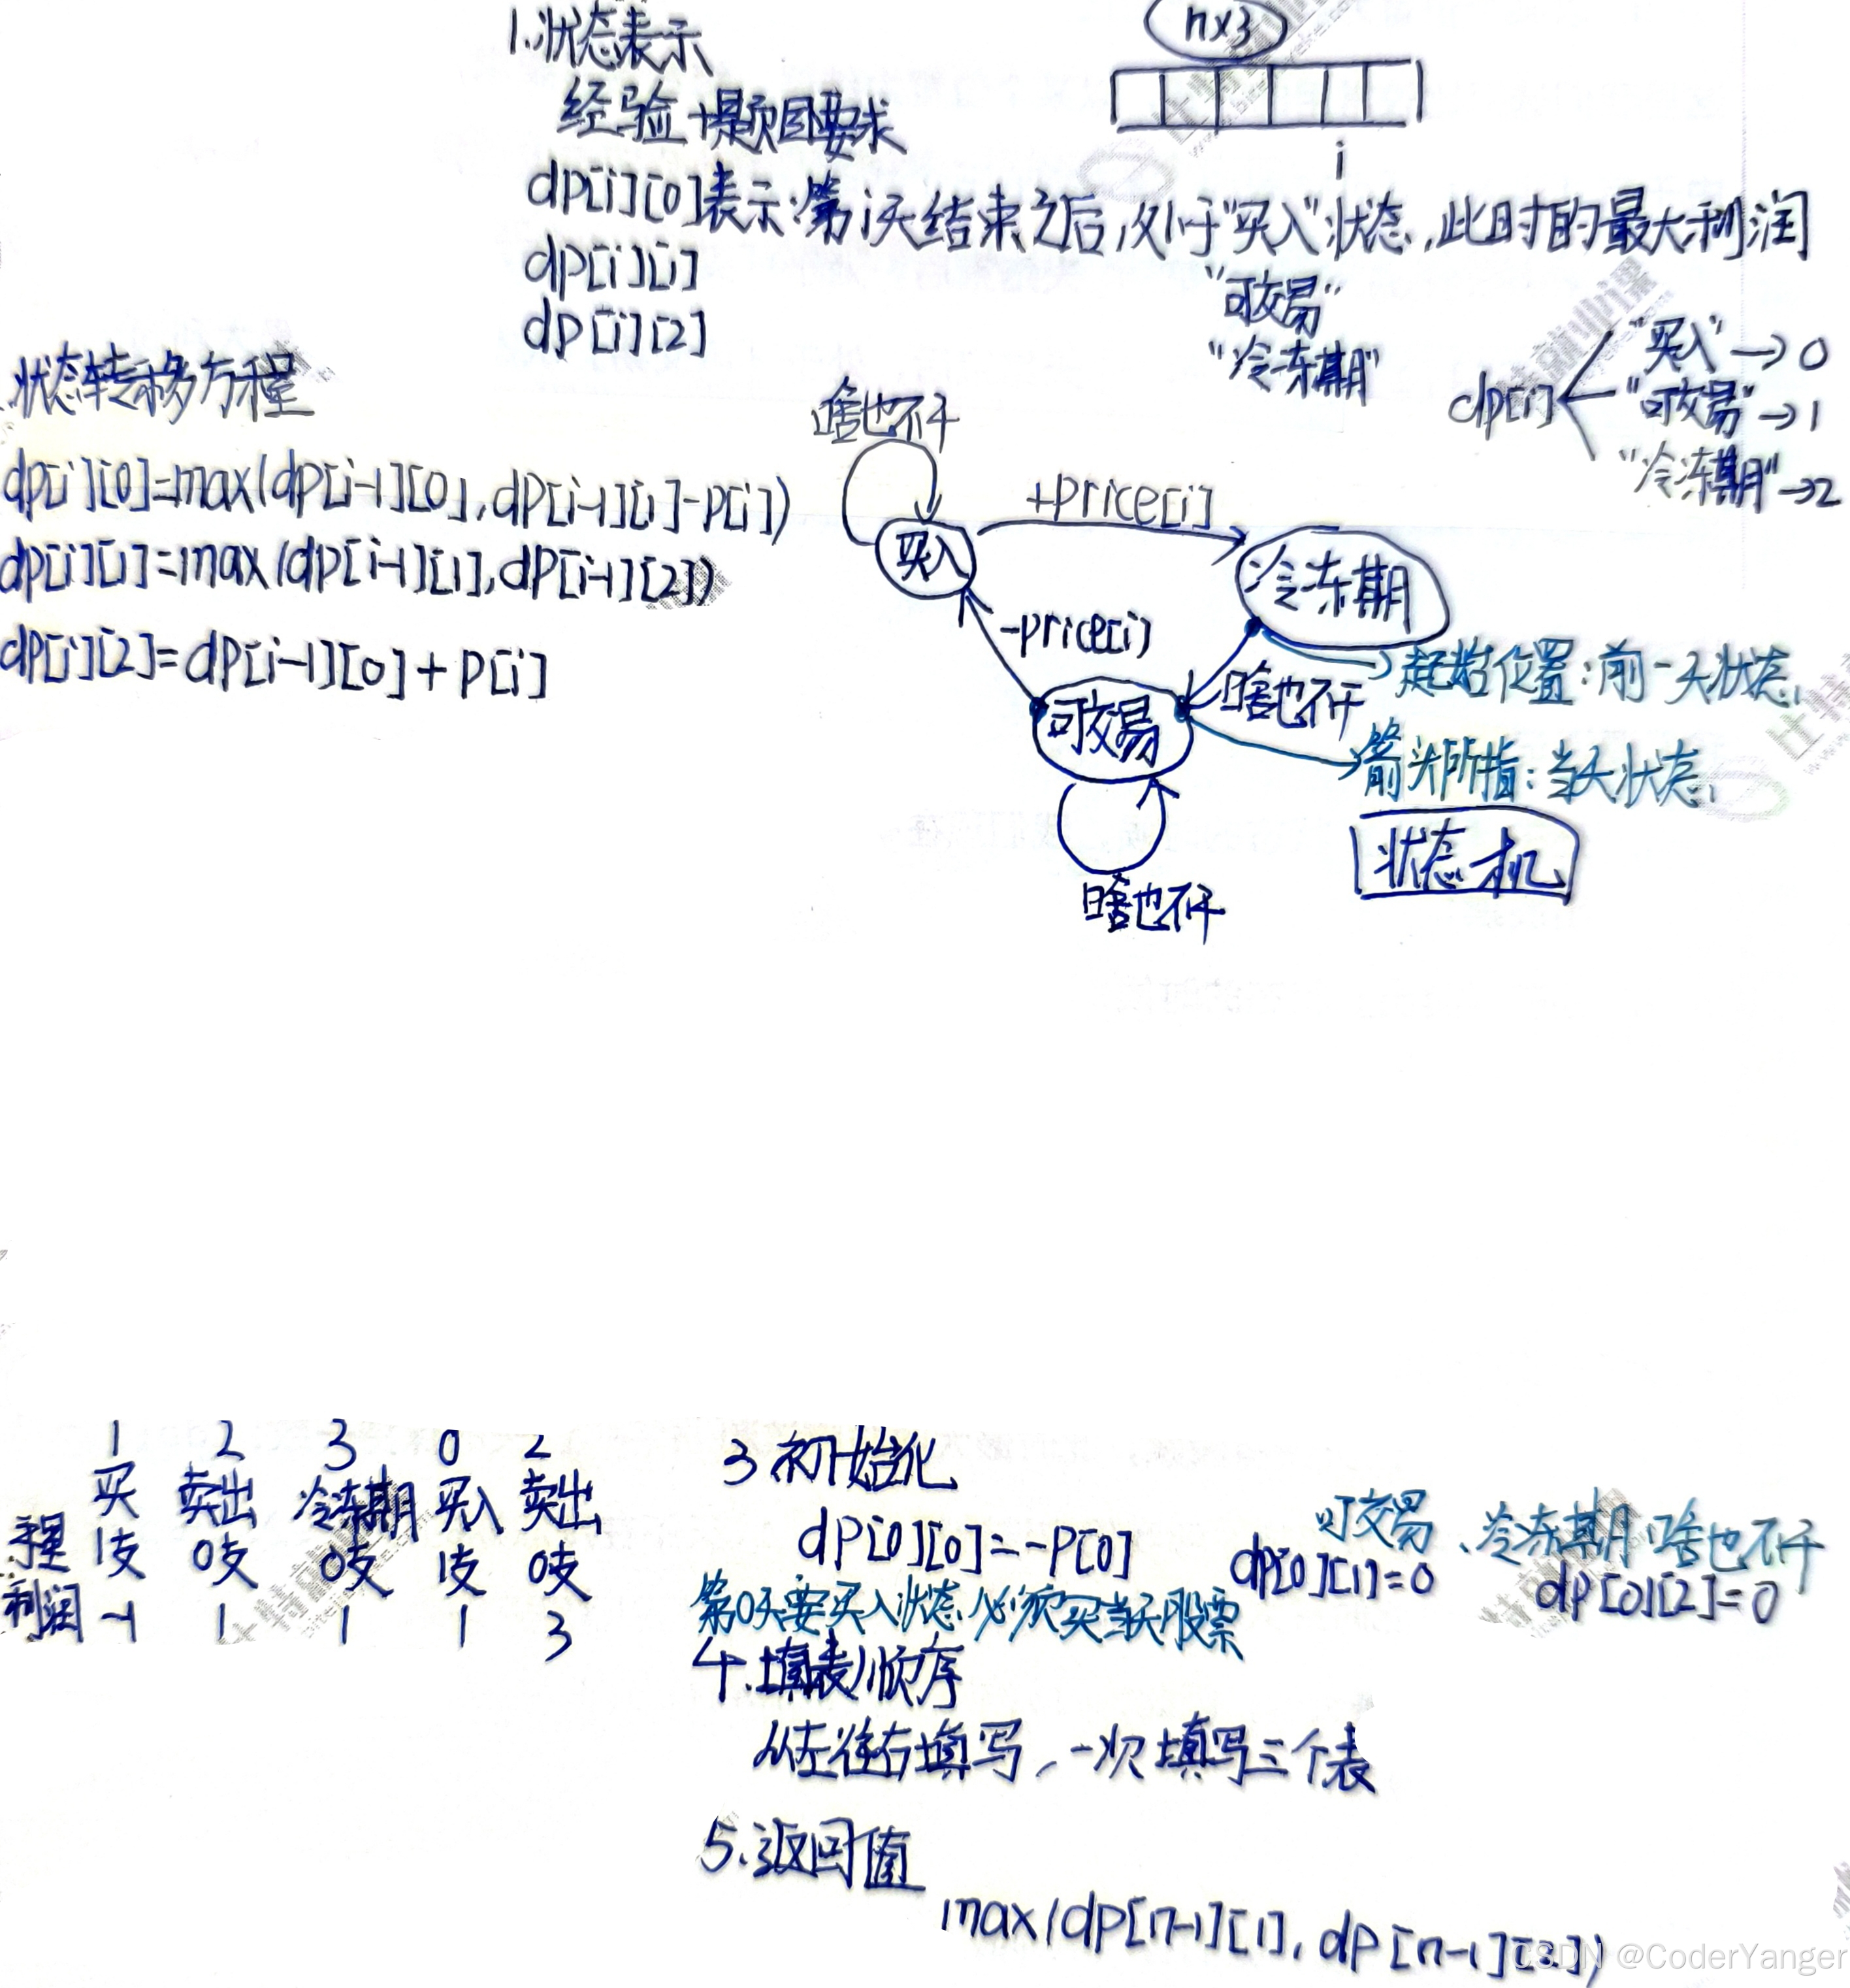 1.状态表示
经验+题目要求
n×3
i
dp[i][0]表示:第i天结束之后,处于"买入"状态,此时的最大利润
dp[i][1]
"可交易"
dp[i][2]
"冷冻期"
dp[i]
"买入"→0
"可交易"→1
"冷冻期"→2
状态转移方程
dp[i][0]=max(dp[i-1][0],dp[i-1][1]-p[i])
dp[i][1]=max(dp[i-1][1],dp[i-1][2])
dp[i][2]=dp[i-1][0]+p[i]
啥也不干
+price[i]
买入
冷冻期
-price[i]
啥也不干
可交易
啥也不干
起始位置:前一天状态
箭头所指:当天状态
状态机
1 2 3 0 2
买 卖出 冷冻期 买入 卖出
手里 1支 0支 0支 1支 0支
利润 -1 1 1 1 3
3 初始化
dp[0][0]=-p[0]
可交易、冷冻期啥也不干
dp[0][1]=0
dp[0][2]=0
第0天要买入状态必须买当天股票
4.填表顺序
从左往右填写,一次填写三个表
5.返回值
max(dp[n-1][1],dp[n-1][2])
CSDN @CoderYanger